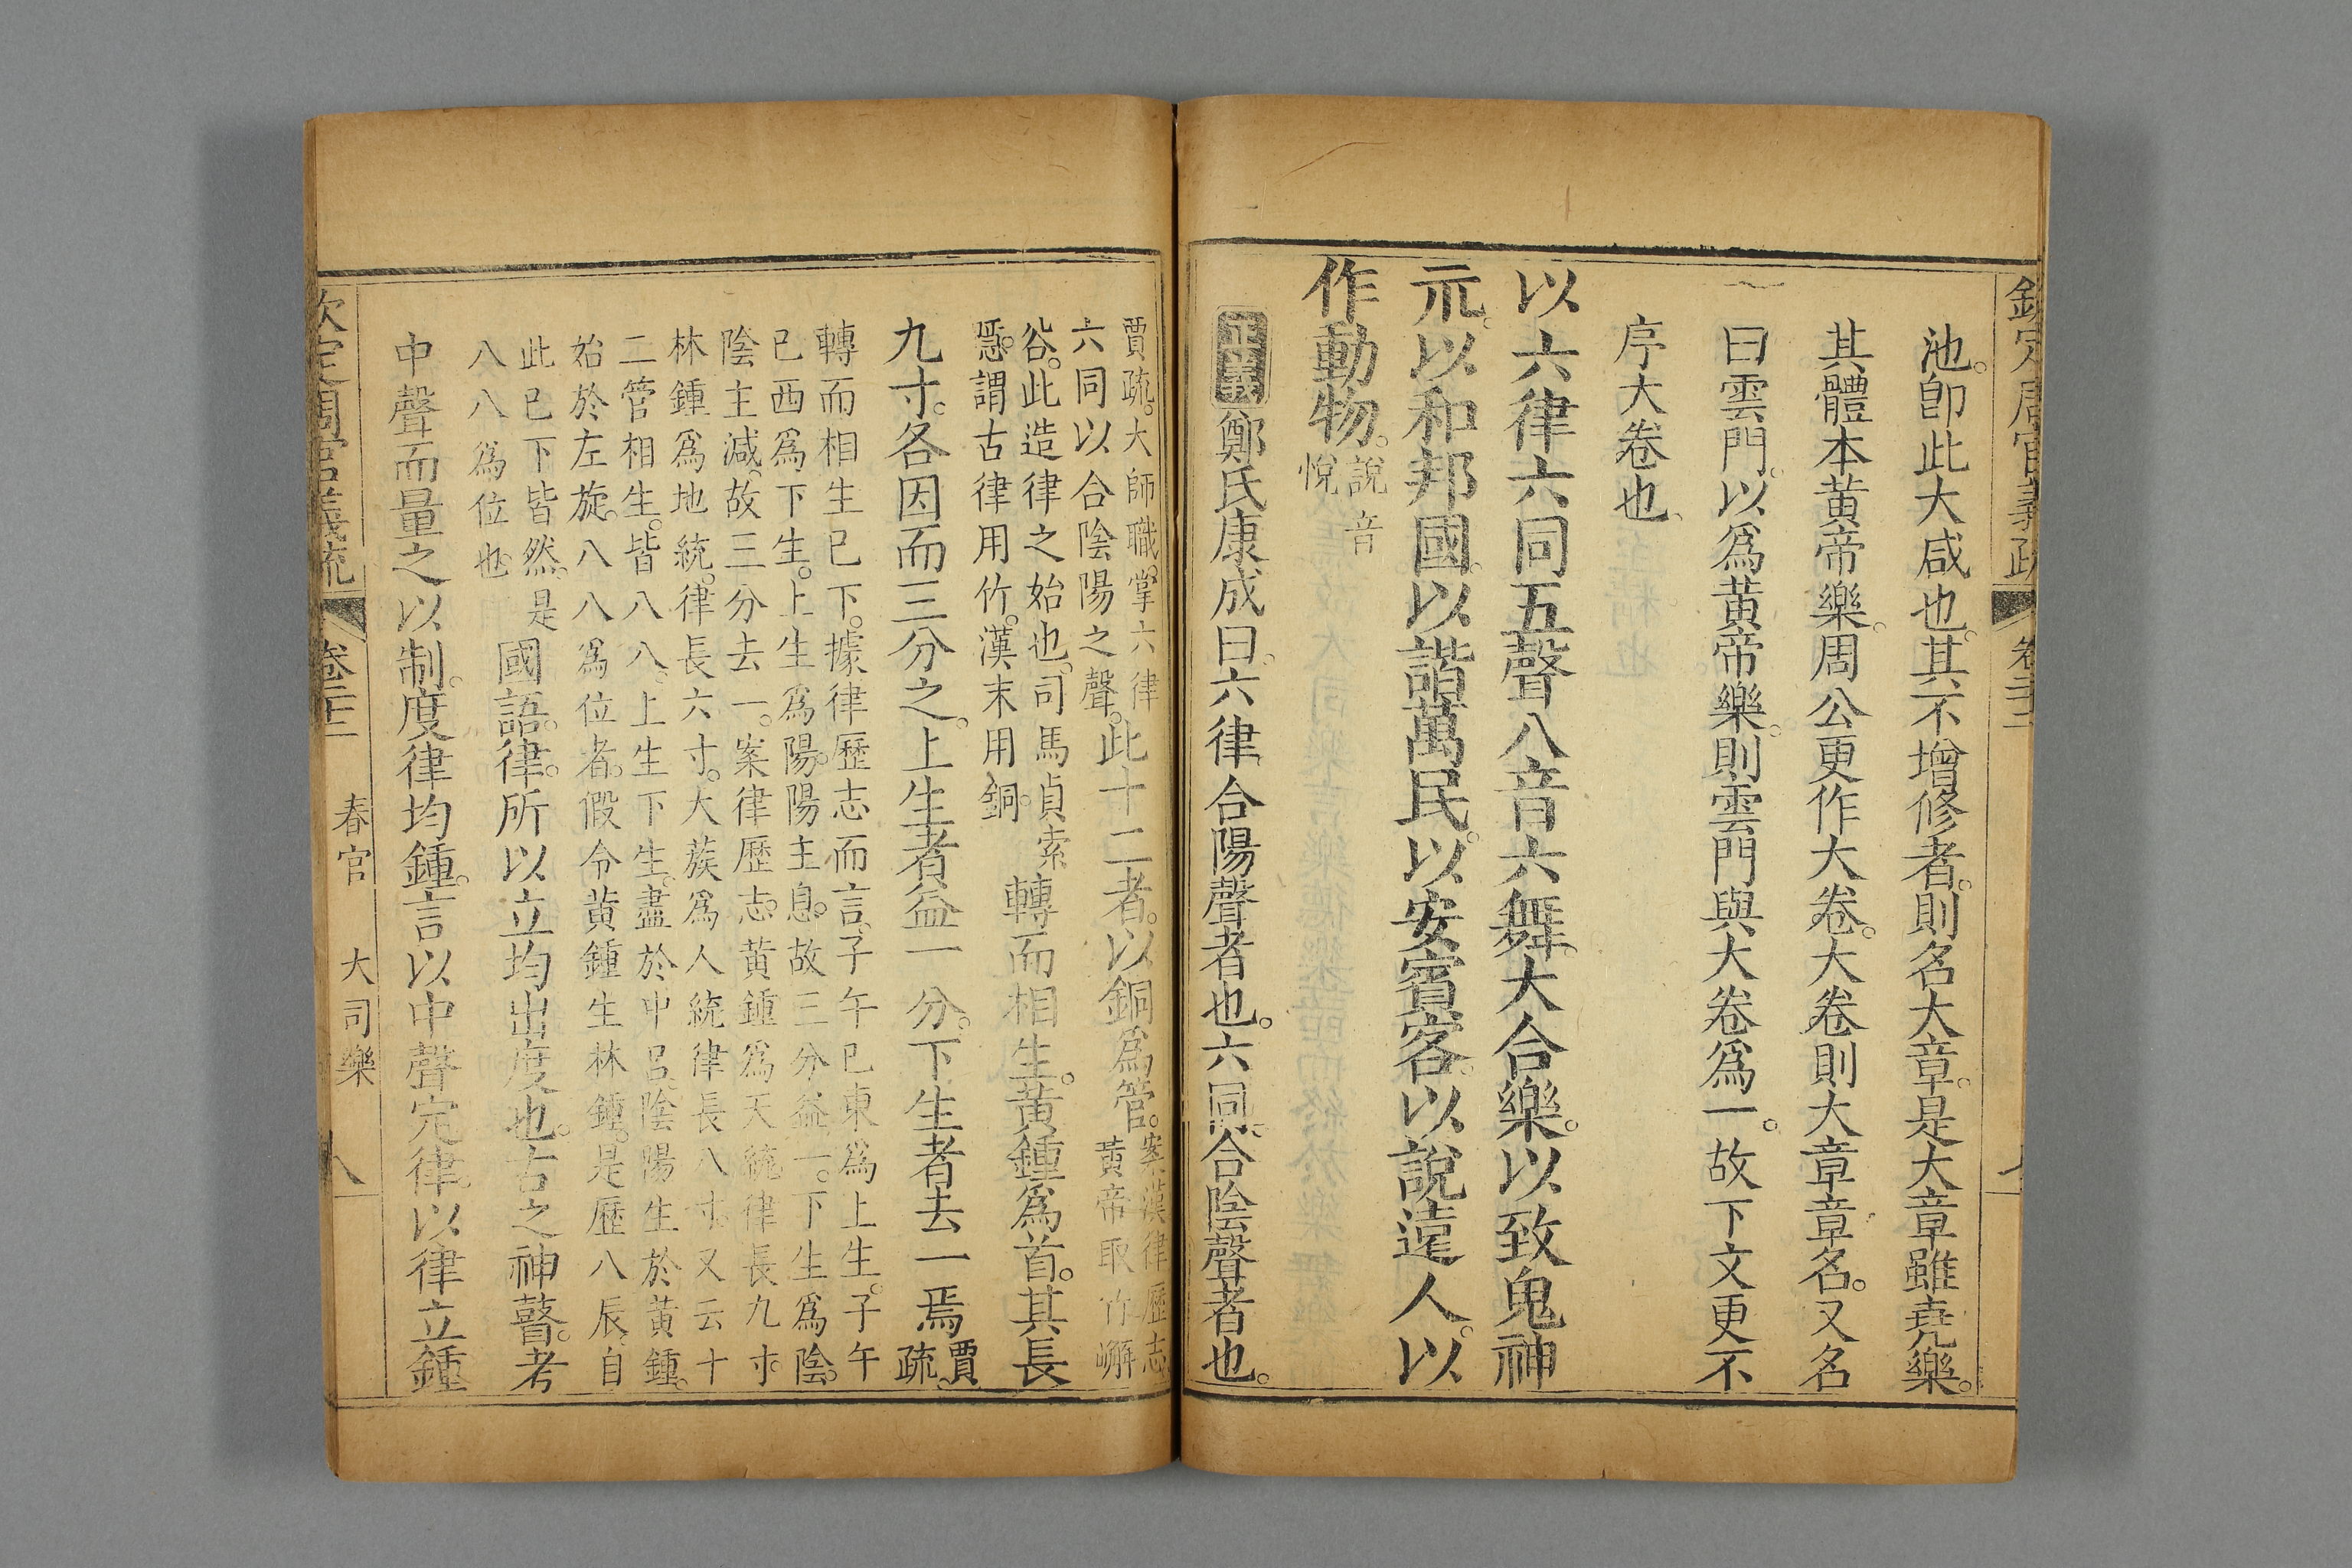 欽定周官義疏 卷二十二
池。卽此大咸也。其不增修者。則名大章。是大章雖堯樂。
其體本黃帝樂。周公更作大卷。大卷則大章章名。又名
曰雲門。以爲黃帝樂。則雲門與大卷爲一。故下文更不
序大卷也。
以六律六同五聲八音六舞。大合樂。以致鬼神
示。以和邦國。以諧萬民。以安賓客。以說遠人。以
作動物。說音
悅
正義鄭氏康成曰。六律合陽聲者也。六同合陰聲者也。
賈疏。大師職。掌六律
六同以合陰陽之聲。此十二者。以銅爲管。案漢律歷志。
黃帝取竹嶰
谷。此造律之始也。司馬貞索
隱。謂古律用竹。漢末用銅。轉而相生。黃鍾爲首。其長
九寸。各因而三分之。上生者益一分。下生者去一焉賈
疏。
轉而相生已下。據律歷志而言。子午巳東爲上生。子午
巳西爲下生。上生爲陽。陽主息。故三分益一。下生爲陰。
陰主減。故三分去一。案律歷志。黃鍾爲天統。律長九寸。
林鍾爲地統。律長六寸。大蔟爲人統律長八寸。又云十
二管相生。皆八八。上生下生。盡於中呂。陰陽生於黃鍾。
始於左旋。八八爲位者。假令黃鍾生林鍾。是歷八辰。自
此已下皆然。是
八八爲位也。國語。律。所以立均出度也。古之神瞽。考
中聲而量之以制。度律均鍾。言以中聲定律。以律立鍾
欽定周官義疏 卷二十二 春官 大司樂 八